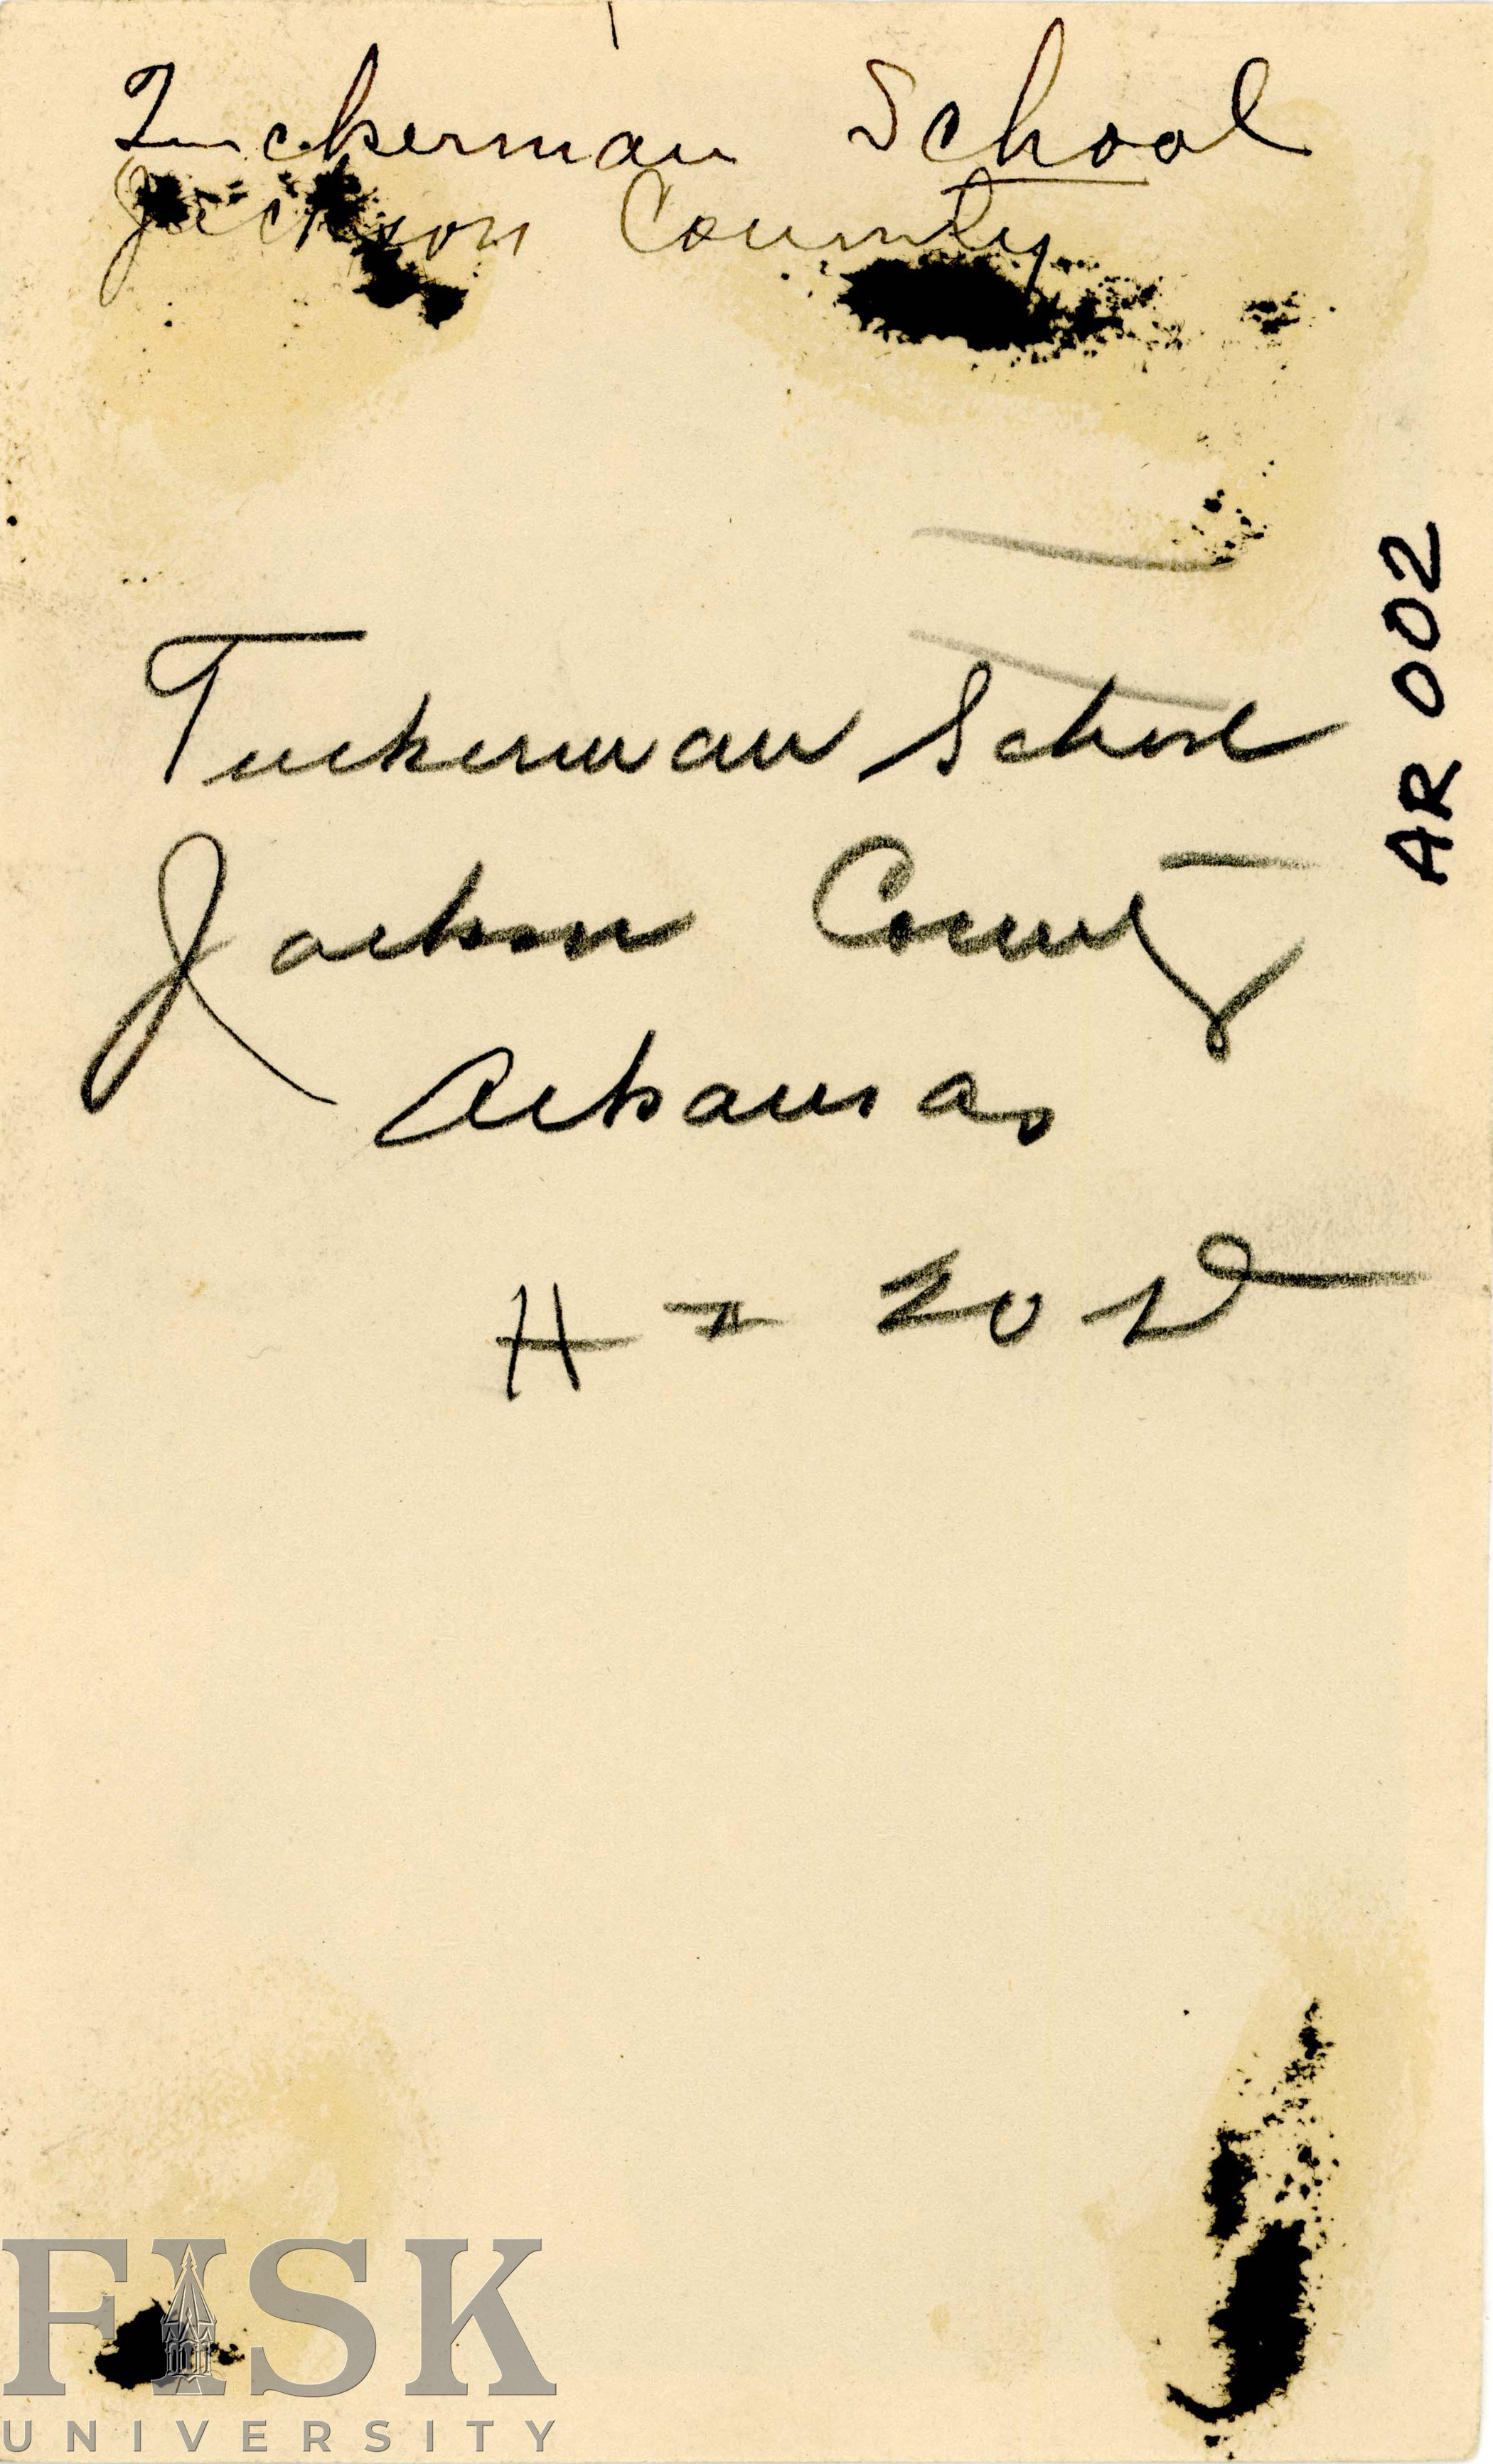 Tuckerman School
Jackson County
AR 002
Tuckerman School
Jackson County
Arkansas
H = 20
FISK
UNIVERSITY